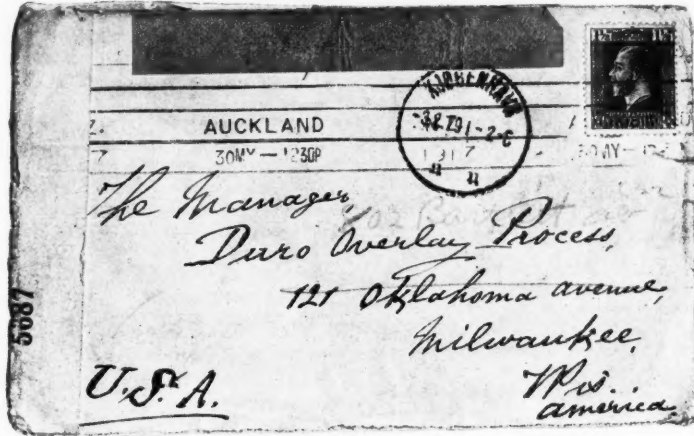 KJØBENHAVN
AUCKLAND
30MY — 1230P
1917
30MY — 12
The Manager
Duro Overlay Process,
121 Oklahoma avenue,
Milwaukee,
Wis.
america.
U.S.A.
5087